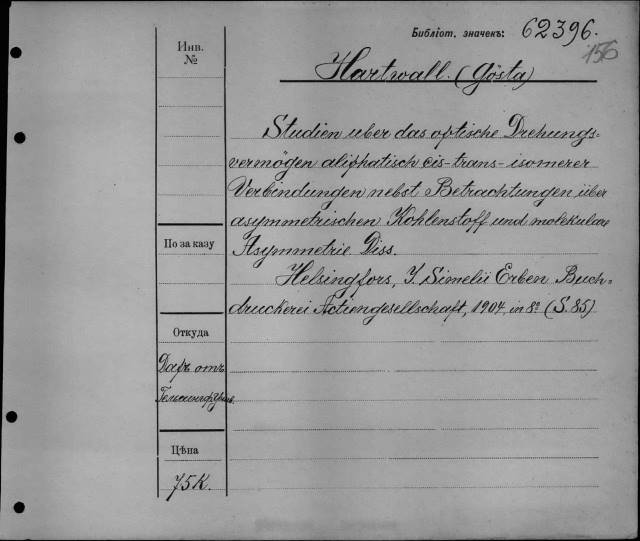 Библіот. значекъ: 62396.
156
Инв.
№
Hartwall. (Gösta)
Studien uber das optische Drehungs-
vermögen aliphatisch cis-trans-isomerer
Verbindungen nebst Betrachtungen über
asymmetrischen Kohlenstoff und molekulare
По заказу
Asymmetrie. Diss.
Helsingfors, J. Simelii Erben Buch-
druckerei Actiengesellschaft, 1904, in 8° (S. 85)
Откуда
Даръ отъ
Гельсингф. Унив.
Цѣна
75 К.